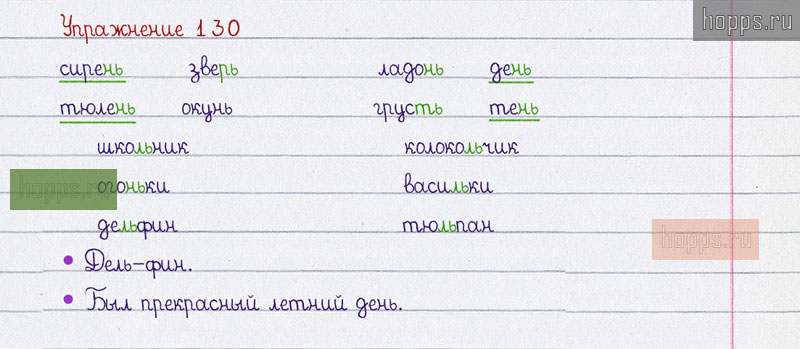 hopps.ru
Упражнение 130
сирень зверь ладонь день
тюлень окунь грусть тень
школьник колокольчик
hopps.ru
огоньки васильки
дельфин тюльпан
hopps.ru
• Дель-фин.
• Был прекрасный летний день.